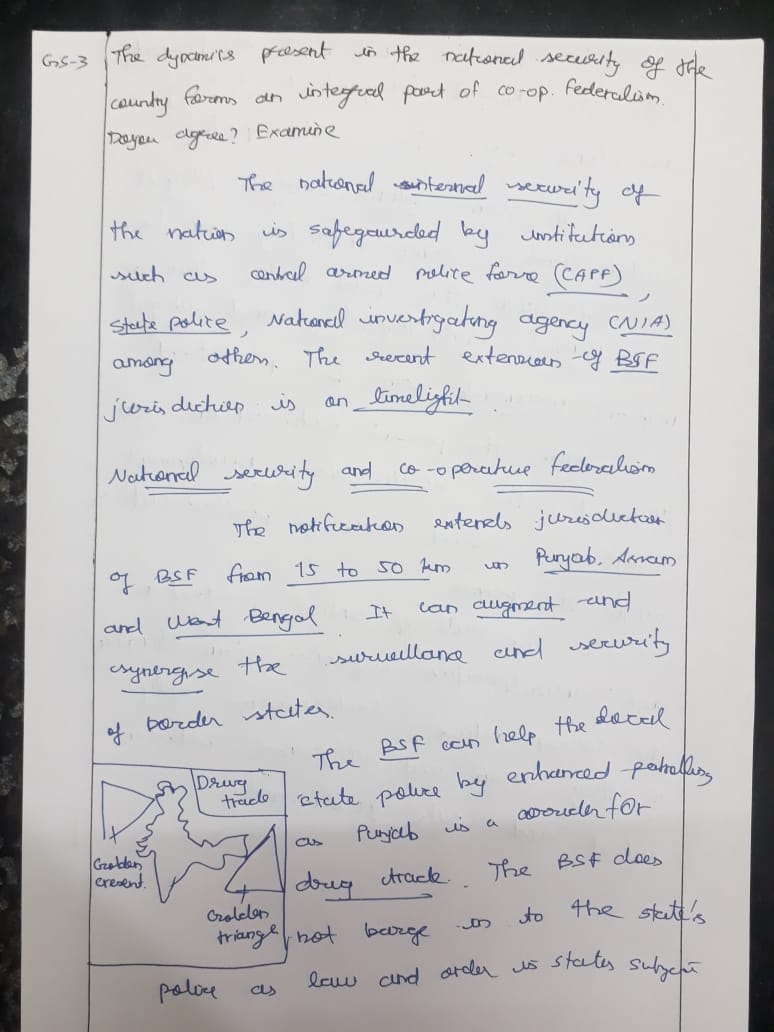 GS-3 The dynamics present in the national security of the
country forms an integral part of co-op. federalism.
Do you agree? Examine
The national internal security of
the nation is safegaurded by institutions
such as central armed police force (CAPF),
state police, National investigating agency (NIA)
among others. The recent extension of BSF
jurisdiction is on limelight.
National security and co-operative federalism
The notification extends jurisdiction
of BSF from 15 to 50 km in Punjab, Assam
and West Bengal. It can augment and
synergise the surveillance and security
of border states.
The BSF can help the local
state police by enhanced patrolling
as Punjab is a corridor for
drug trade. The BSF does
not barge in to the state's
police as law and order is states subject
Drug
trade
Golden
cresent.
Golden
triangle